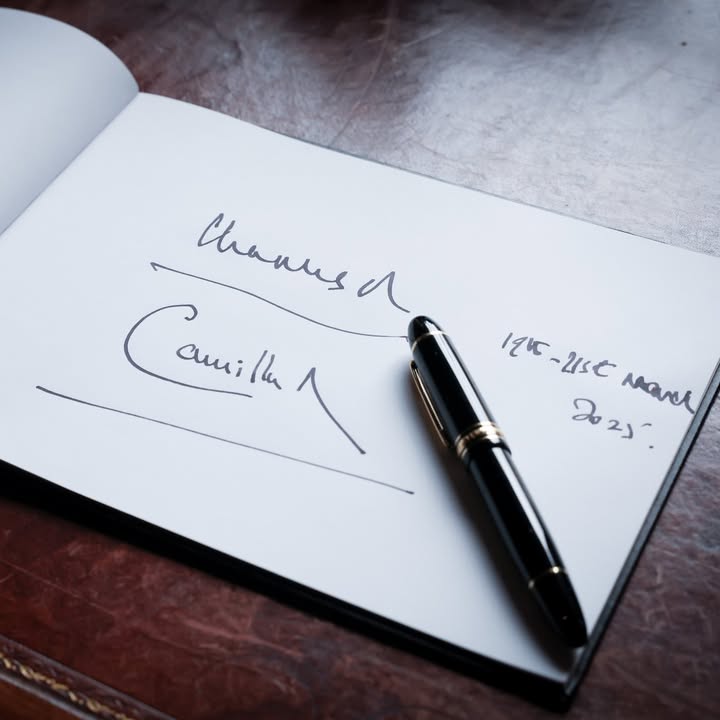 Charles R
Camilla R
19th - 21st March
2025.